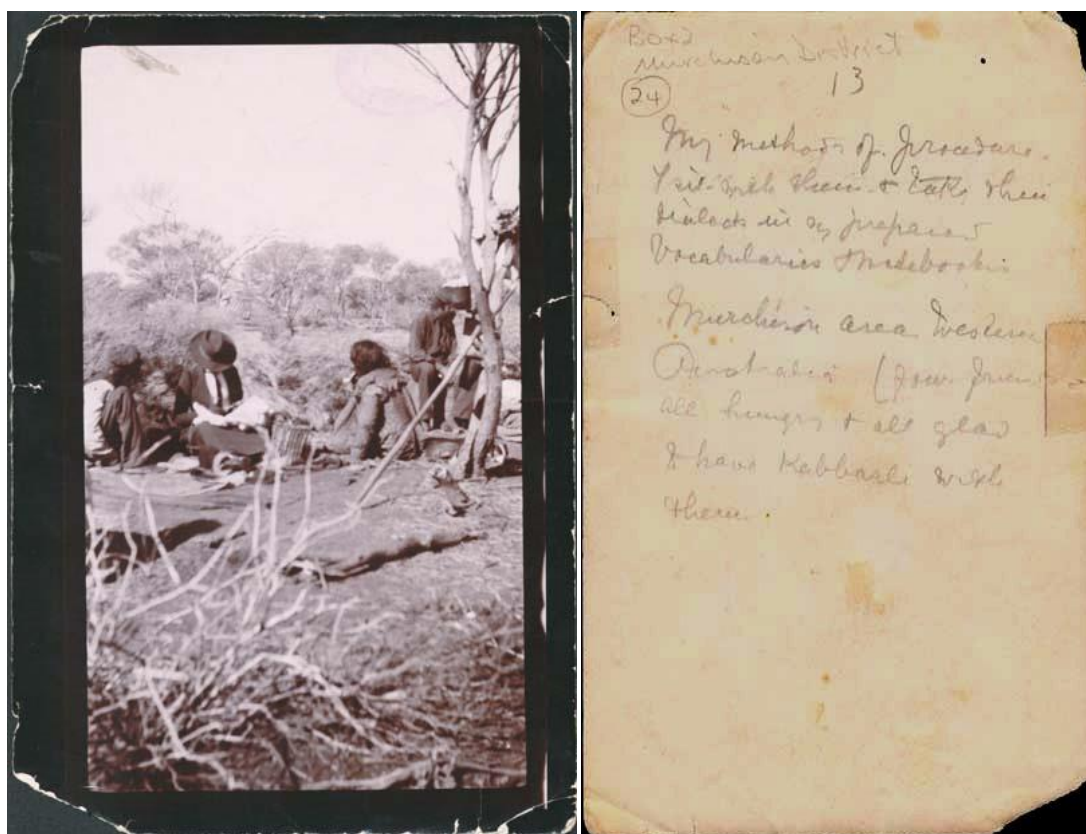 Box 2
Murchison District
13
24
My methods of procedure.
I sit with them & take their
dialects in my prepared
Vocabularies & notebooks
Murchison area Western
Australia (
all hungry & all glad
to have Kabbarli with
them.